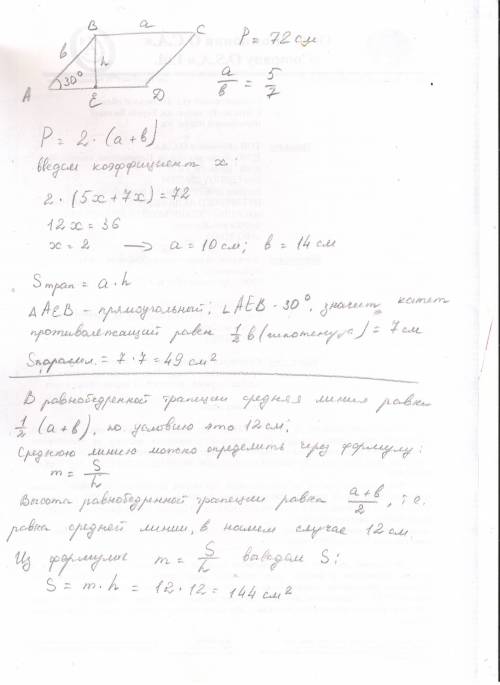 B a C
b h 30°
A E D
P = 72 см
a/b = 5/7
P = 2 · (a + b)
введем коэффициент x.
2 · (5x + 7x) = 72
12x = 36
x = 2 → a = 10 см; b = 14 см
Sтрап = a · h
△AEB - прямоугольный; ∠AEB - 30°, значит катет
противолежащий равен 1/2 b (гипотенуза) = 7 см
Sпаралл. = 7 · 7 = 49 см²
В равнобедренной трапеции средняя линия равна
1/2 (a + b), по условию это 12 см;
Среднюю линию можно определить через формулу:
m = S/h
Высота равнобедренной трапеции равна (a + b)/2, т.е.
равна средней линии, в нашем случае 12 см.
Из формулы m = S/h выведем S:
S = m · h = 12 · 12 = 144 см²